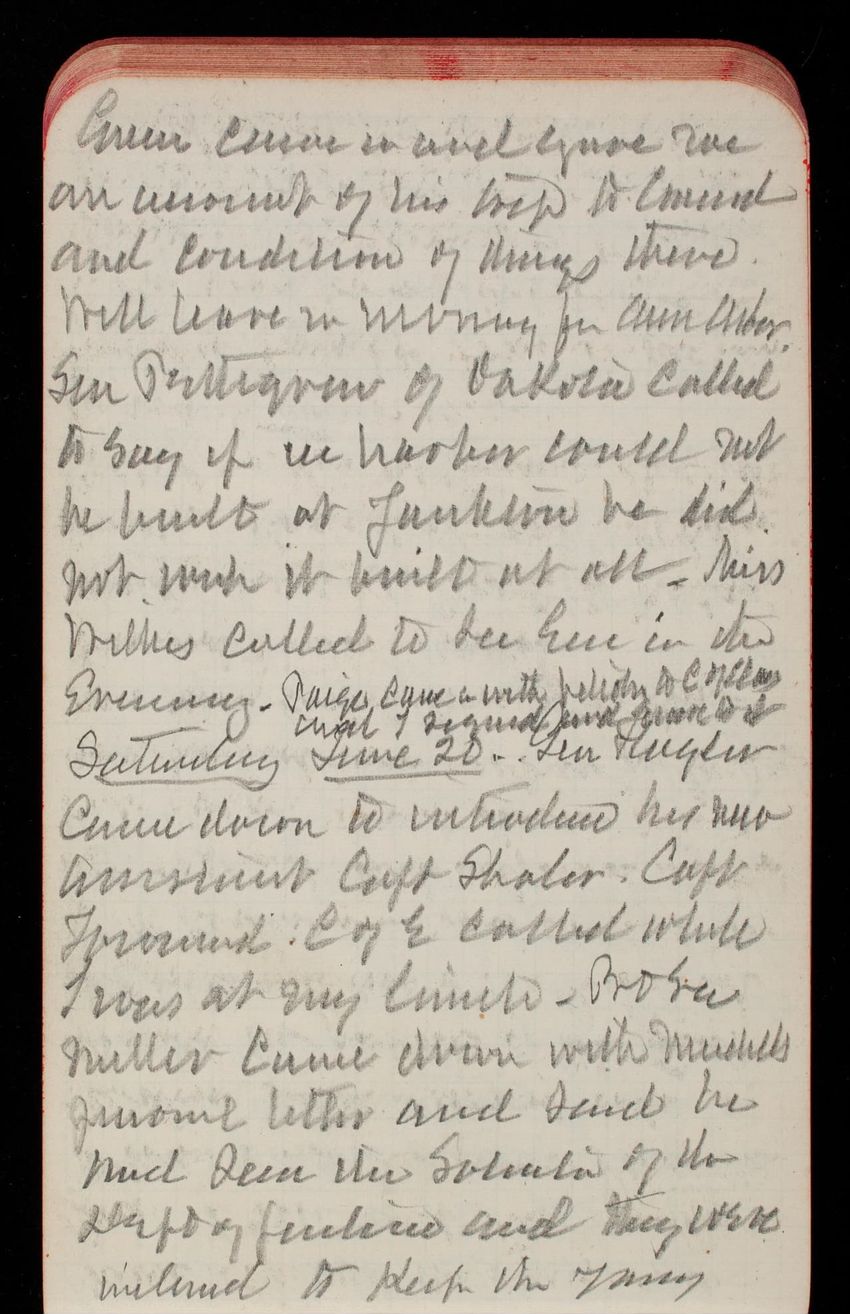 Green came in and gave me
an account of his trip to
and condition of things there.
Will leave in morning for Ann Arbor.
Sen Pettigrew of Dakota called
to say if harbor could not
be built at Yankton he did
not wish it built at all - Miss
Wilkes called to see in the
Evening - Paige came in with to
and I signed and gave to
Saturday June 20 - Gen
Came down to introduce his new
assistant Capt Shaler. Capt
C of E called while
I was at my lunch - Bvt Gen
Miller came down with
letter and said he
had seen the of the
Dept of Justice and they were
inclined to keep the